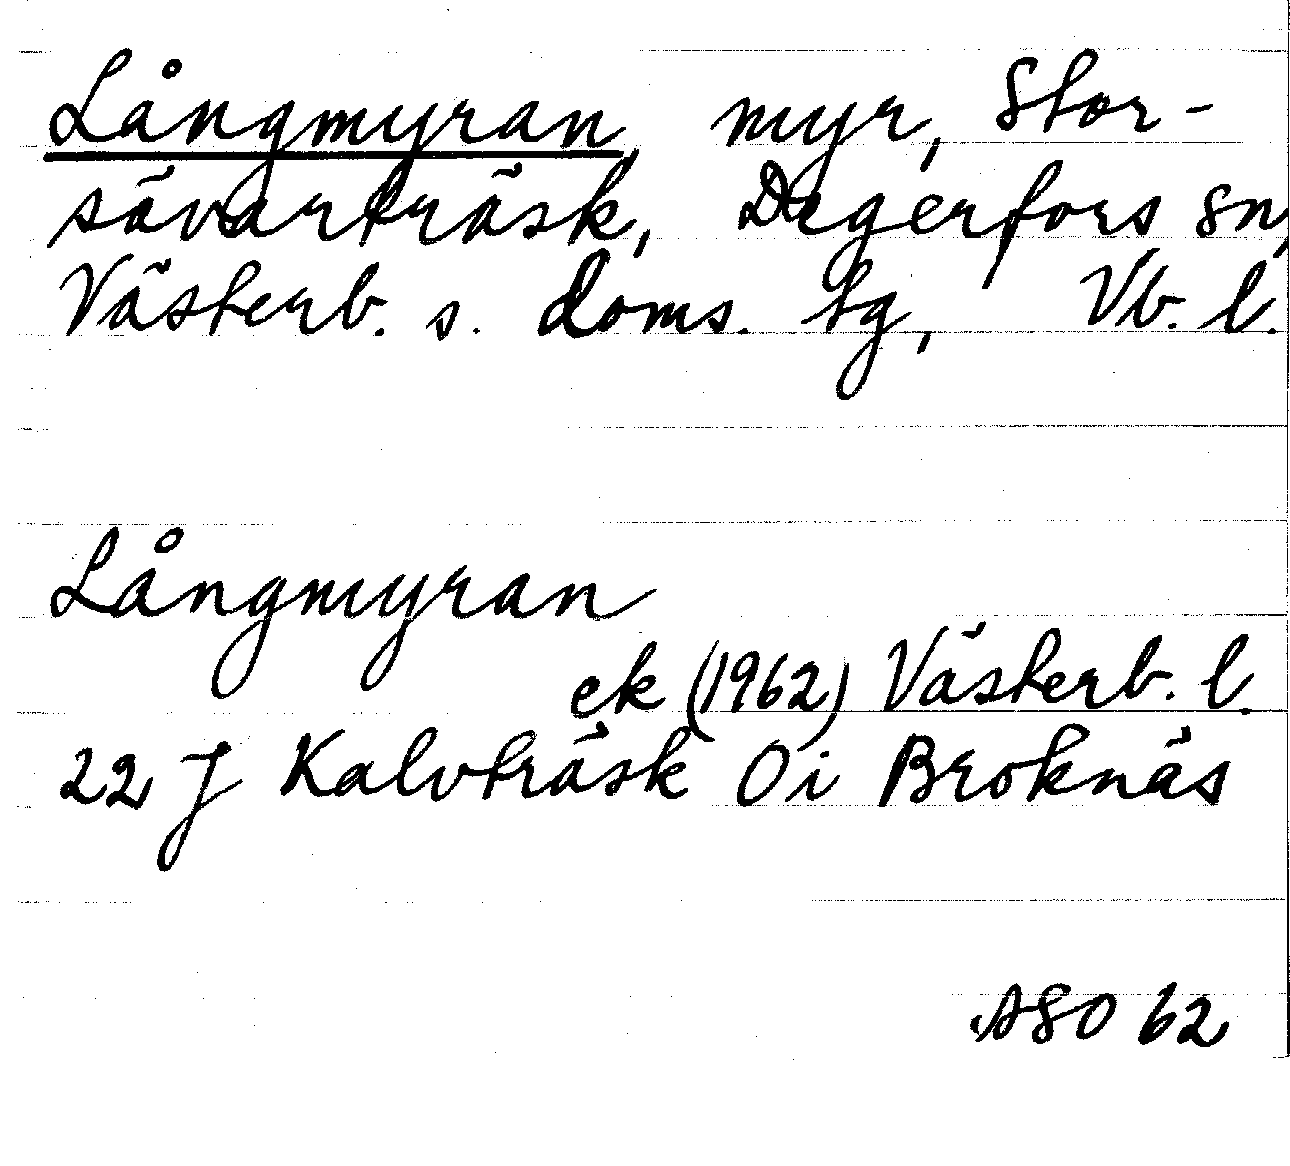 Långmyran, myr, Stor-
sävarträsk, Degerfors sn,
Västerb. s. doms. tg, Vb. l.
Långmyran
ek (1962) Västerb. l.
22 J Kalvträsk 0i Broknäs
ASO 62